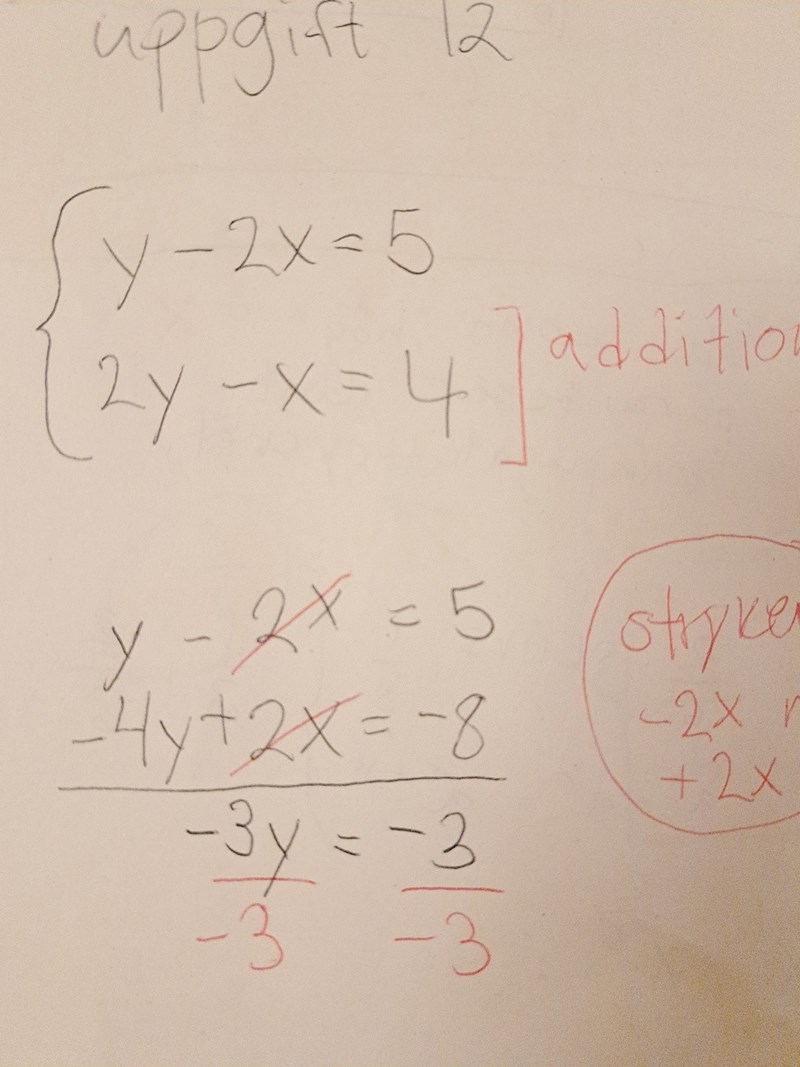 uppgift 12
y - 2x = 5
2y - x = 4
addition
y - 2x = 5
-4y + 2x = -8
stryker
-2x
+2x
-3y = -3
-3 -3